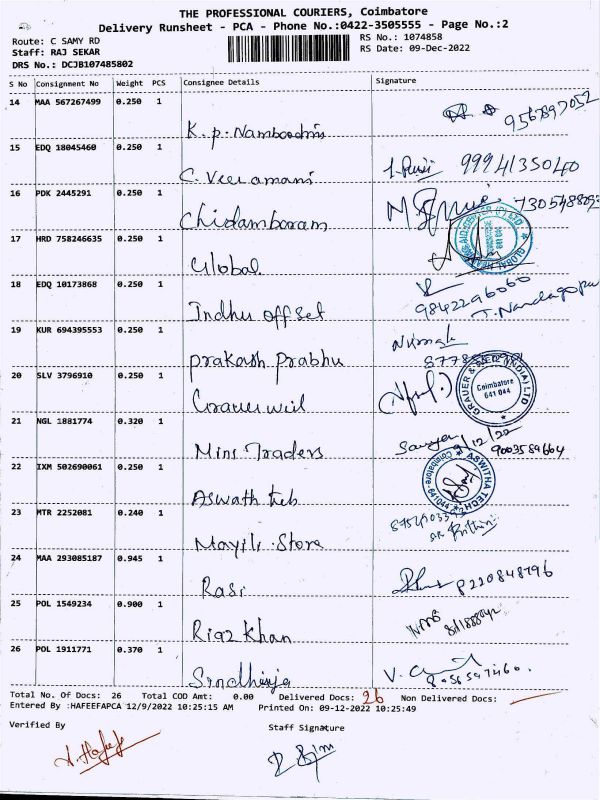 THE PROFESSIONAL COURIERS, Coimbatore
Delivery Runsheet - PCA - Phone No.:0422-3505555 - Page No.:2
Route: C SAMY RD
RS No.: 1074858
Staff: RAJ SEKAR
RS Date: 09-Dec-2022
DRS No.: DCJB107485802
S No Consignment No Weight PCS Consignee Details Signature
14 MAA 567267499 0.250 1
K.p. Namboodris 9567897052
15 EDQ 18045460 0.250 1
C. Veeramani 9994135040
16 PDK 2445291 0.250 1
Chidambaram
17 HRD 758246635 0.250 1
Global
18 EDQ 10173868 0.250 1
Indhu offset 9842296060
19 KUR 694395553 0.250 1
Prakash Prabhu
20 SLV 3796910 0.250 1
GRAUER & WEIL (INDIA) LTD
Coimbatore
641 044
21 NGL 1881774 0.320 1
Mins Traders 9003589664
22 IXM 502690061 0.250 1
Aswath teb
ASWITHA TECH
Coimbatore-641044
23 MTR 2252081 0.240 1
Mayili Store
24 MAA 293085187 0.945 1
Rasi 8220848796
25 POL 1549234 0.900 1
Riaz Khan
26 POL 1911771 0.370 1
8056547460.
Total No. Of Docs: 26 Total COD Amt: 0.00 Delivered Docs: 26 Non Delivered Docs:
Entered By :HAFEEFAPCA 12/9/2022 10:25:15 AM Printed On: 09-12-2022 10:25:49
Verified By Staff Signature